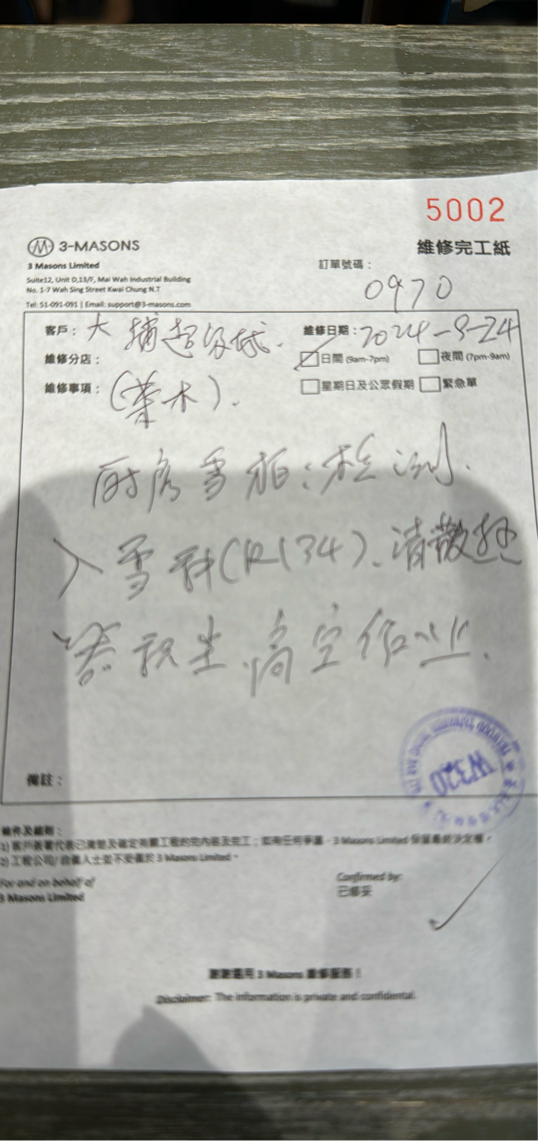 5002
3-MASONS
維修完工紙
3 Masons Limited
訂單號碼：
Suite12, Unit D,13/F, Mai Wah Industrial Building
No. 1-7 Wah Sing Street Kwai Chung N.T
0970
Tel: 51-091-091 | Email: support@3-masons.com
客戶：大埔超
維修日期：2024-9-24
維修分店：
日間 (9am-7pm) 夜間 (7pm-9am)
維修事項：
星期日及公眾假期 緊急單
廚房雪柜：檢測.
入雪種(R134)、清散热
器积尘、高空作业.
W320
備註：
條件及細則：
1) 客戶簽署代表已清楚及確定有關工程的完內容及完工；如有任何爭議，3 Masons Limited 保留最終決定權。
2) 工程公司/ 技術人士並不受僱於 3 Masons Limited。
For and on behalf of
Confirmed by:
3 Masons Limited
已修妥
謝謝選用 3 Masons 維修服務！
Disclaimer: The information is private and confidential.